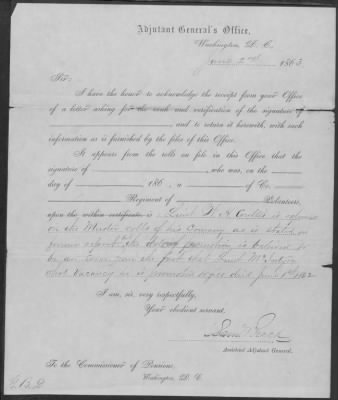 Adjutant General's Office,
Washington, D. C.
June 2nd 1863
Sir:
I have the honor to acknowledge the receipt from your Office
of a letter asking for the rank and verification of the signature of
and to return it herewith, with such
information as is furnished by the files of this Office.
It appears from the rolls on file in this Office that the
signature of , who was, on the
day of 186 , a of Co.
Regiment of Volunteers,
upon the within certificate is Lieut
on the Muster rolls of his Company as is stated in
is believed to
be an error from the fact that Lieut
vacancy is promotion June 1st 1862
I am, sir, very respectfully,
Your obedient servant,
Assistant Adjutant General.
To the Commissioner of Pensions,
Washington, D. C.